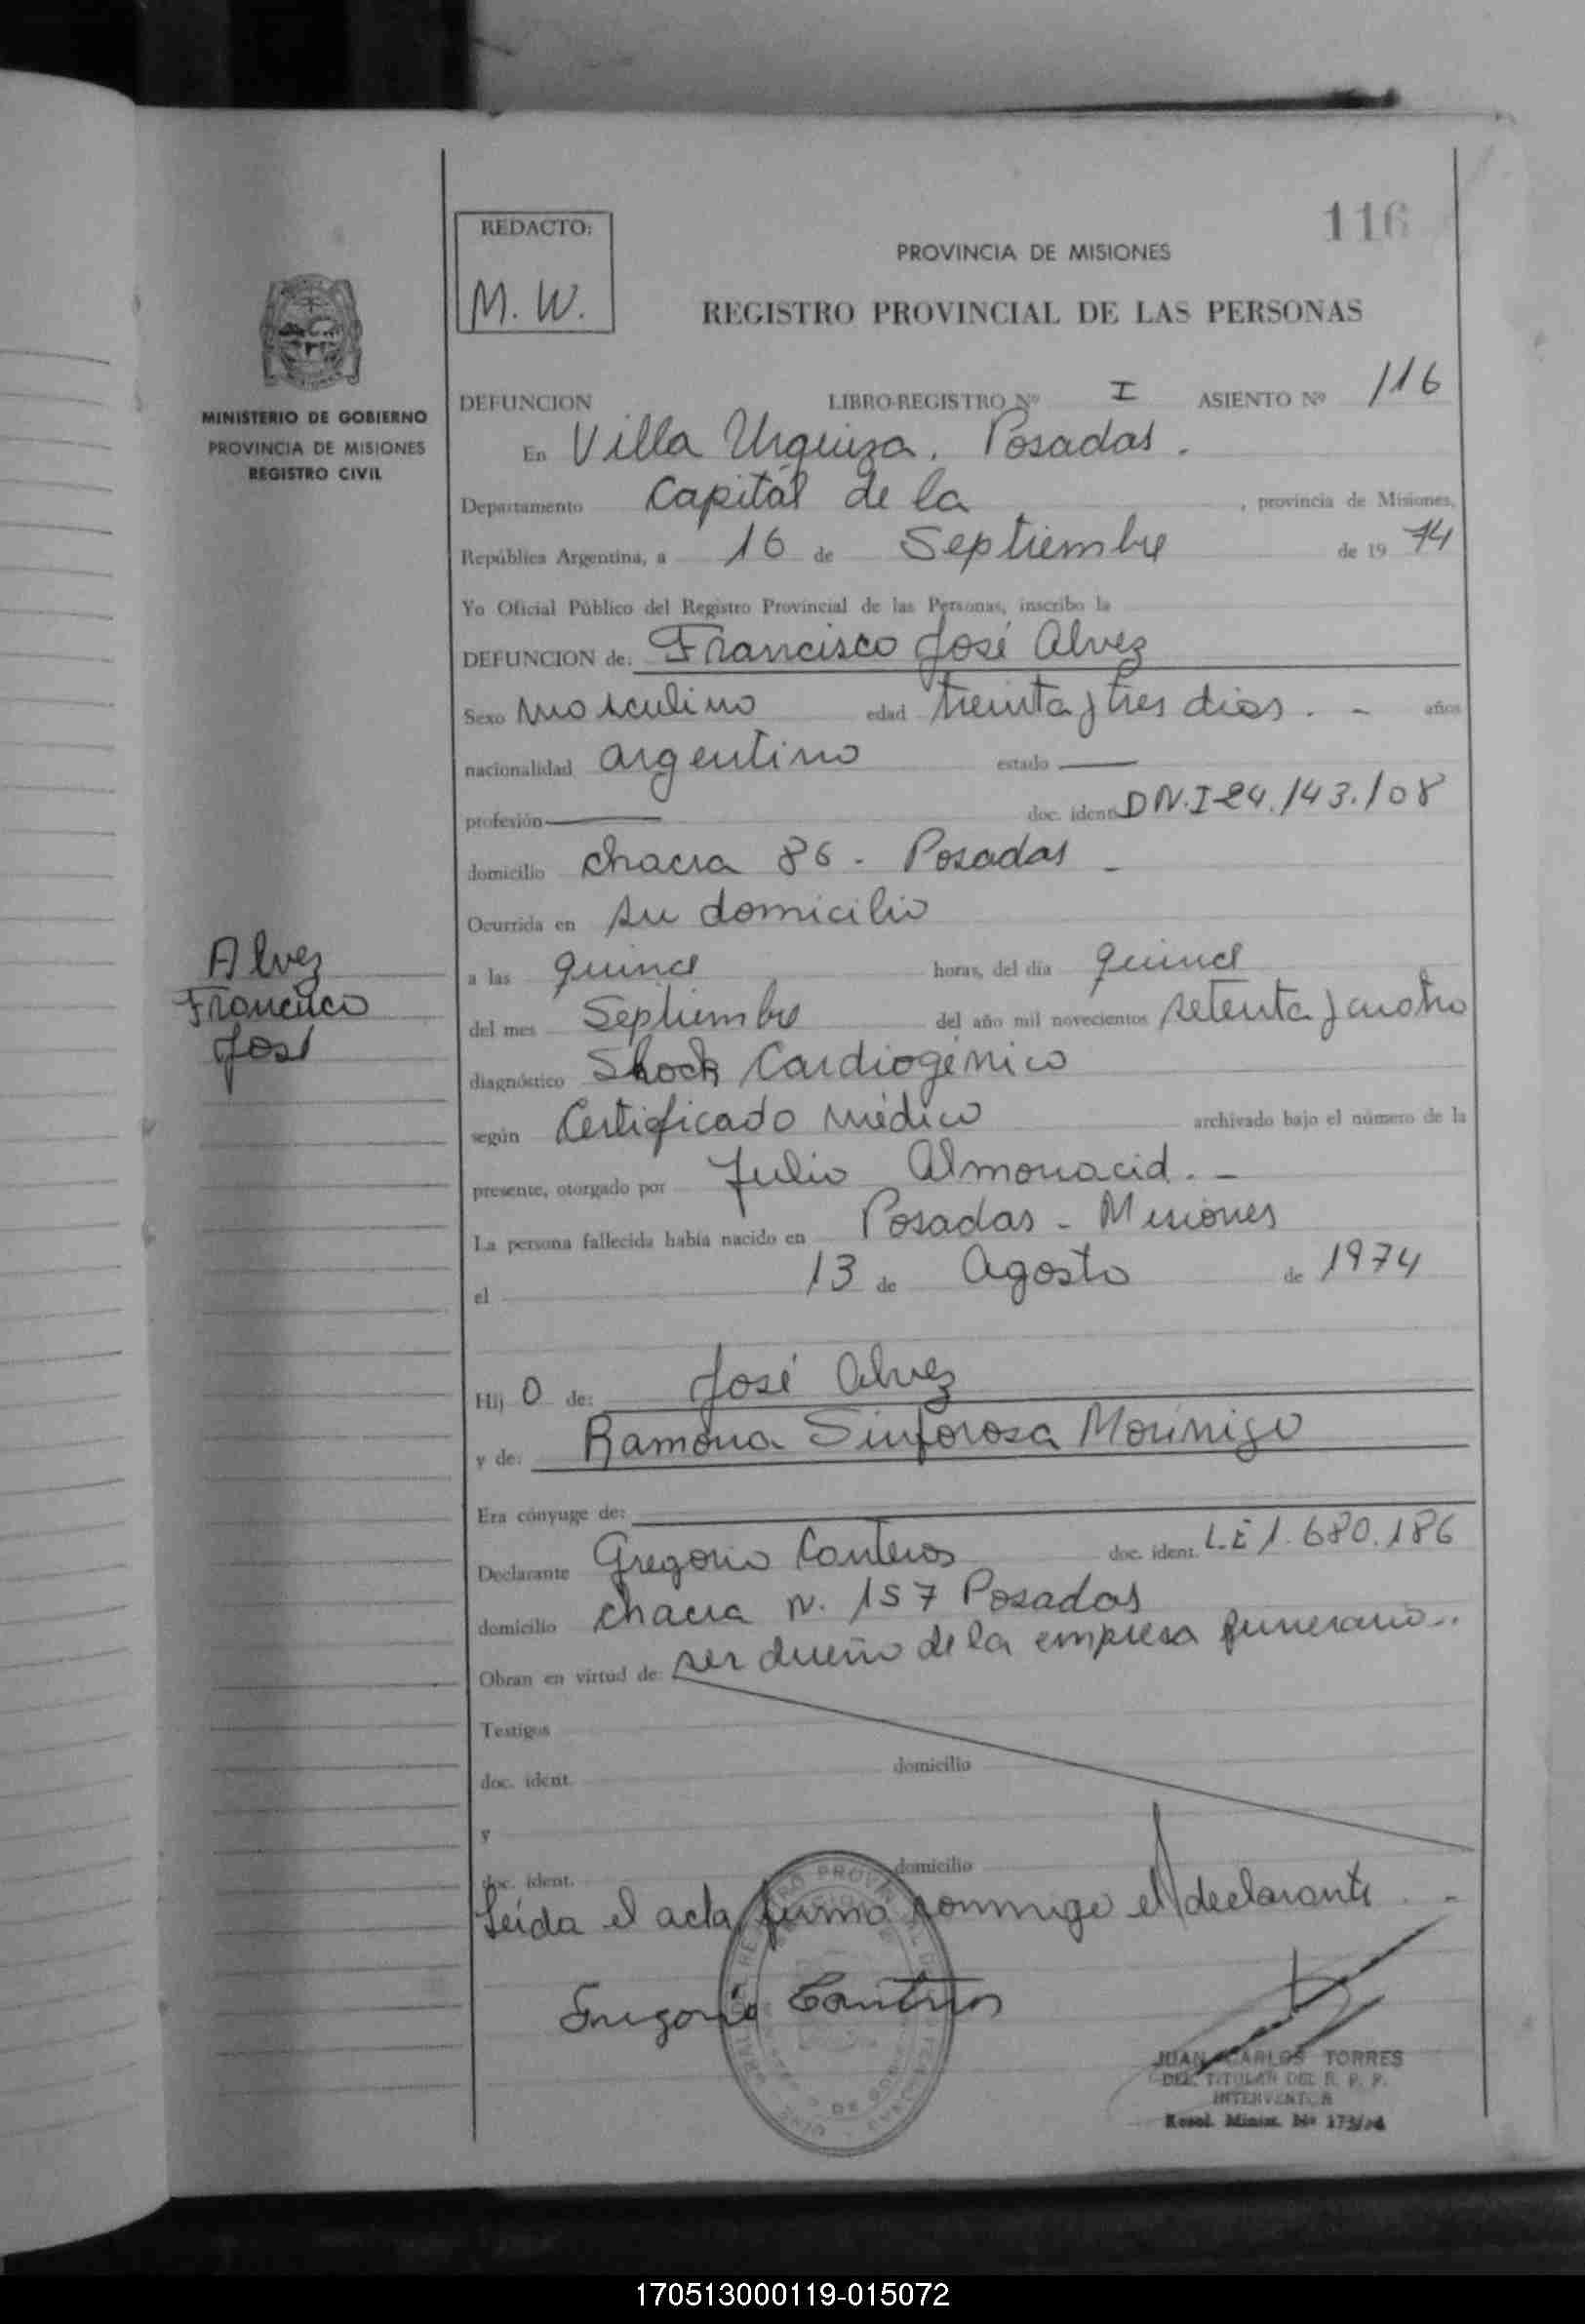 116
REDACTO:
M. W.
PROVINCIA DE MISIONES
REGISTRO PROVINCIAL DE LAS PERSONAS
MINISTERIO DE GOBIERNO
PROVINCIA DE MISIONES
REGISTRO CIVIL
DEFUNCION LIBRO-REGISTRO Nº I ASIENTO Nº 116
En Villa Urquiza. Posadas.
Departamento Capital de la , provincia de Misiones,
República Argentina, a 16 de Septiembre de 19 74
Yo Oficial Público del Registro Provincial de las Personas, inscribo la
DEFUNCION de: Francisco José Alvez
Sexo masculino edad treinta y tres dias. - años
nacionalidad argentino estado
profesión doc. ident. DN.I 24.143.108
domicilio chacra 86 - Posadas -
Ocurrida en su domicilio
a las quince horas, del día quince
del mes Septiembre del año mil novecientos setenta y cuatro
diagnóstico Shock Cardiogénico
según Certificado médico archivado bajo el número de la
presente, otorgado por Julio Almonacid. -
La persona fallecida había nacido en Posadas - Misiones
el 13 de Agosto de 1974
Hij o de: José Alvez
y de: Ramona Sinforosa Morinigo
Era cónyuge de:
Declarante Gregorio Canteros doc. ident. L.E 1.680.186
domicilio chacra N. 157 Posadas
Obran en virtud de: ser dueño de la empresa funeraria..
Testigos
doc. ident. domicilio
y
doc. ident. domicilio
Leída el acta, firma conmigo el declarante . -
Gregorio Canteros
Alvez
Francisco
José
JUAN CARLOS TORRES
DEL. TITULAR DEL R. P. P.
INTERVENTOR
Resol. Minist. Nº
170513000119-015072